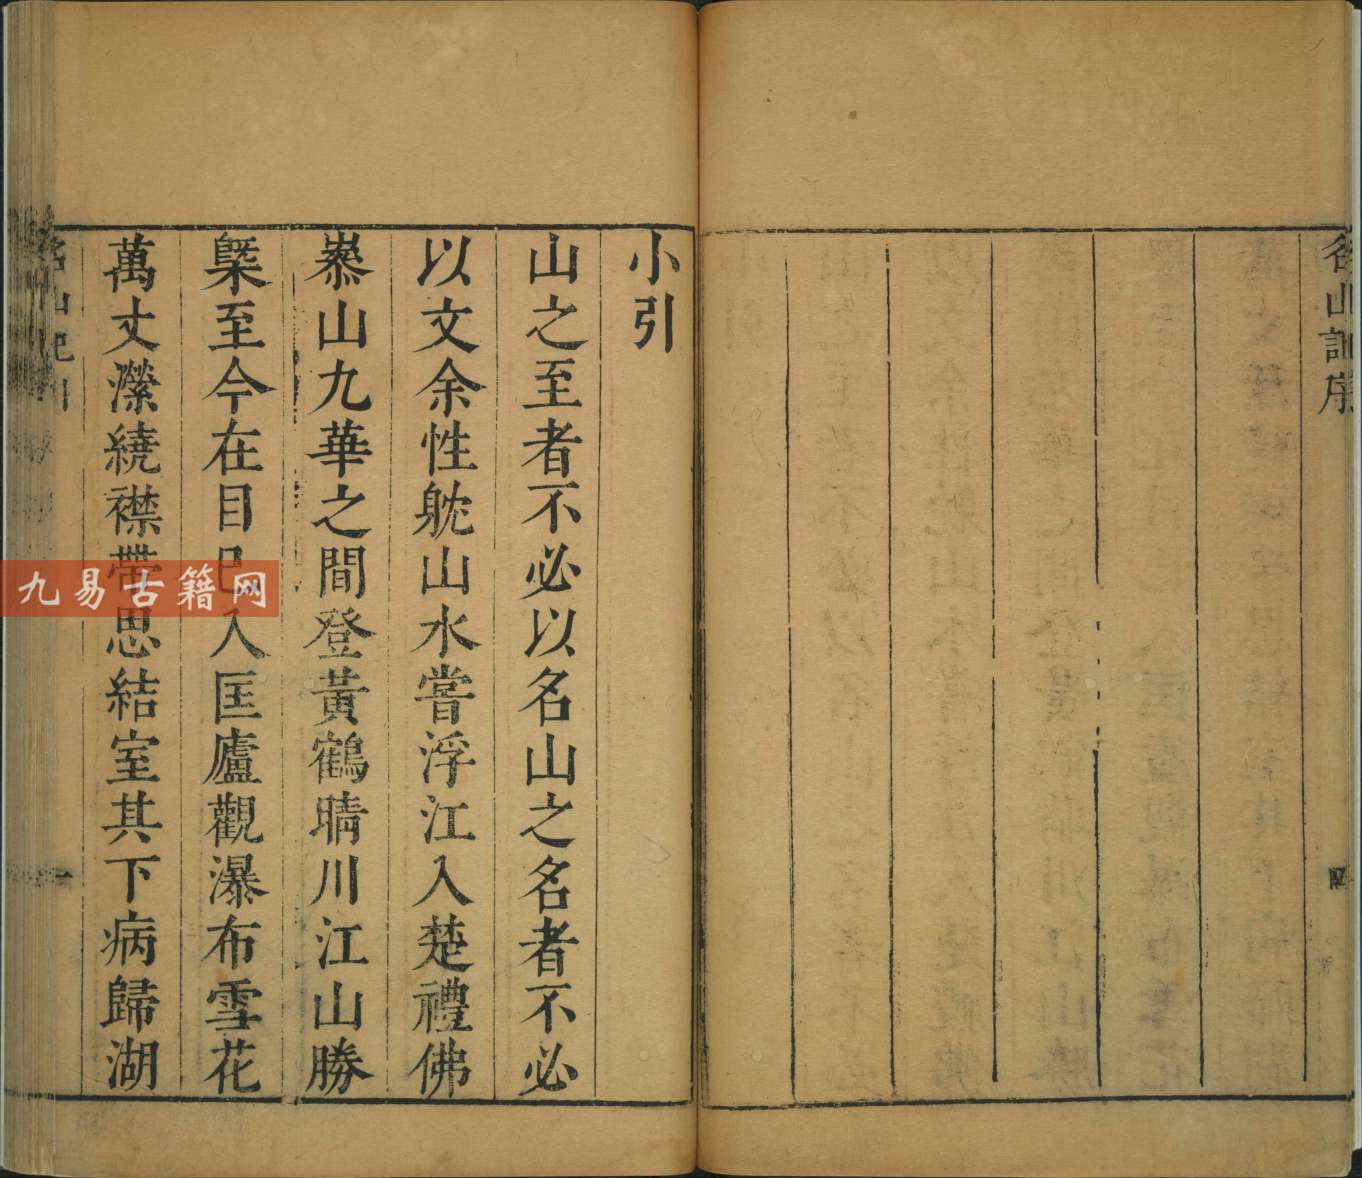 名山記序
四
小引
山之至者不必以名山之名者不必
以文余性躭山水嘗浮江入楚禮佛
嵾山九華之間登黃鶴晴川江山勝
槩至今在目已入匡廬觀瀑布雪花
萬丈濴繞襟帶思結室其下病歸湖
名山記引
一
九易古籍网